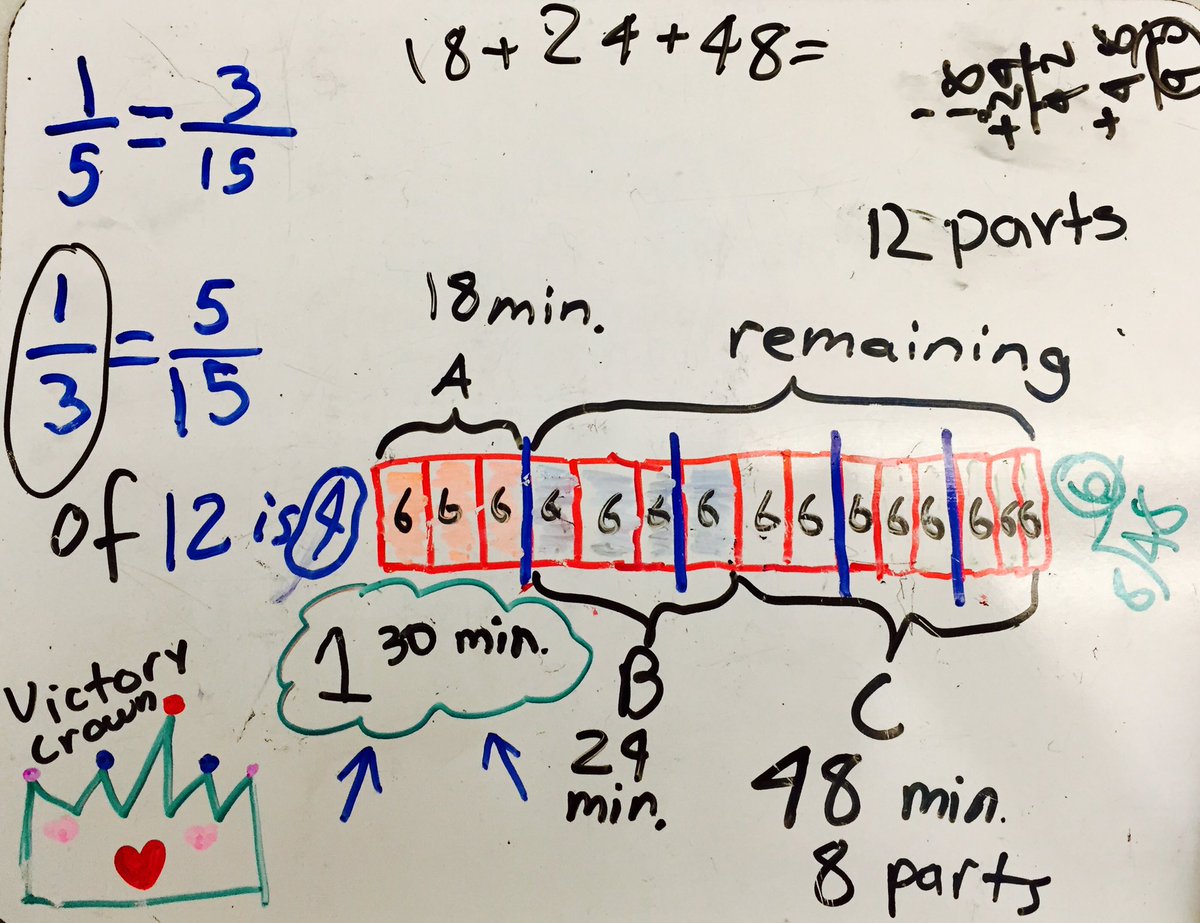 18+24+48=
1/5=3/15
12 parts
1/3=5/15
of 12 is 4
18min.
A
remaining
6 6 6 6 6 6 6 6 6 6 6 6 6 6 6
6
6/48
1 30 min.
B
24
min.
C
48 min.
8 parts
Victory
crown